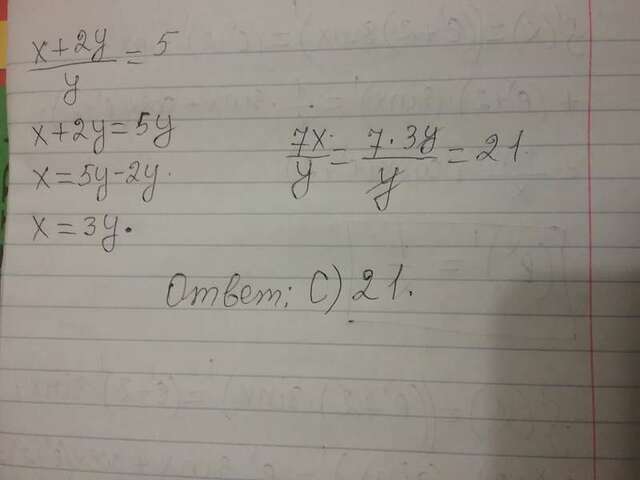 x+2y/y = 5
x+2y=5y
x=5y-2y.
x=3y.
7x/y = 7·3y/y = 21.
Ответ: С) 21.